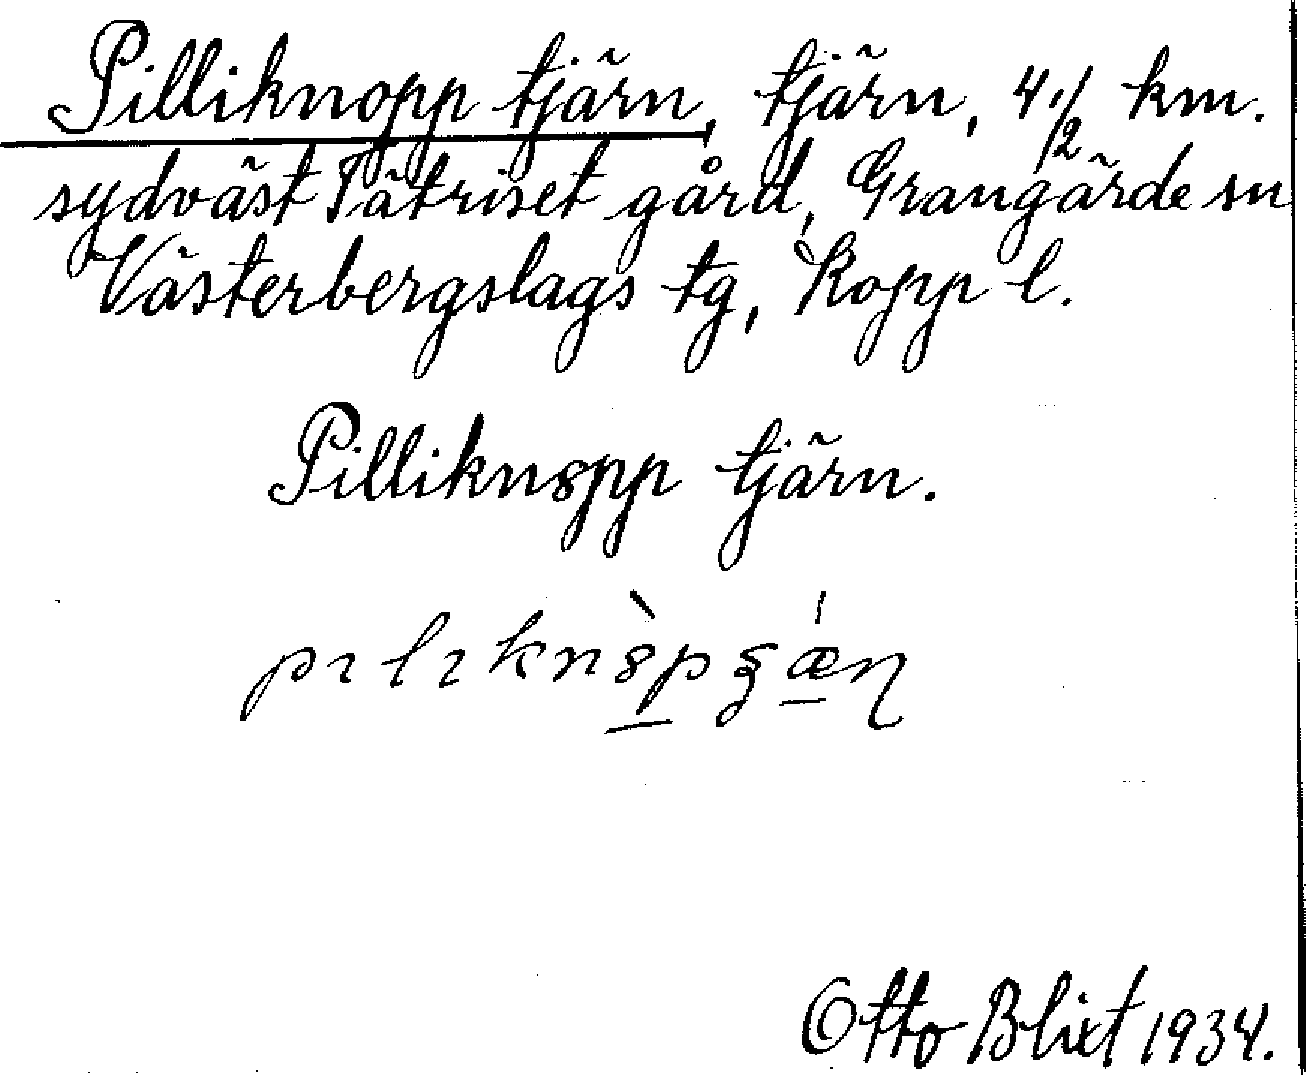 Pilliknopp tjärn, tjärn, 4 1/2 km.
sydväst Tätriset gård, Grangärde sn
Västerbergslags tg, Kopp l.
Pilliknspp tjärn.
Otto Blixt 1934.